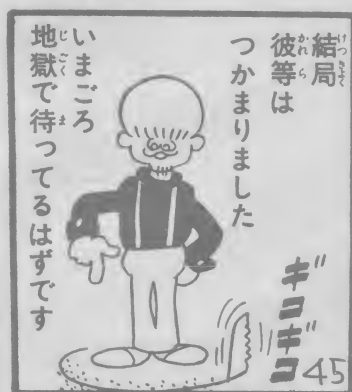 結局
彼等は
つかまりました
いまごろ
地獄で待ってるはずです
ギコギコ
45